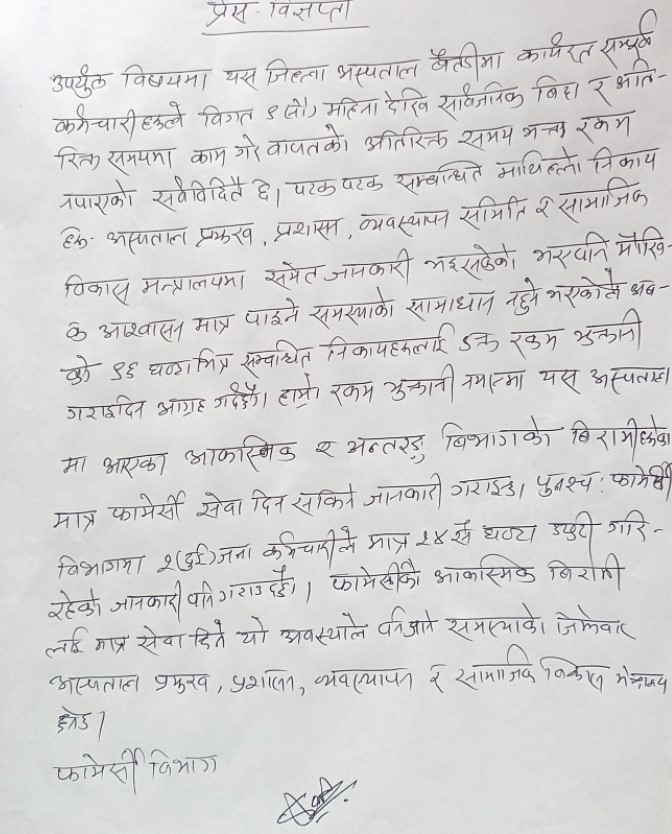 प्रेस - विज्ञप्ती
उपर्युक्त विषयमा यस जिल्ला अस्पताल बैतडीमा कार्यरत सम्पूर्ण
कर्मचारीहरुले विगत ९ (नौ) महिना देखि सार्वजनिक विदा र अति-
रिक्त समयमा काम गरे वापतको अतिरिक्त समय भत्ता रकम
नपाएको सर्वविदितै छ। पटक पटक सम्बन्धित माथिल्लो निकाय
अस्पताल प्रमुख, प्रशासन, व्यवस्थापन समिति र सामाजिक
विकास मन्त्रालयमा समेत जानकारी भइसकेको भएपनि मौखि-
क आश्वासन मात्र पाइने समस्याको सामाधान नहुने भएकोले अब-
को ९६ घण्टा भित्र सम्बन्धित निकायहरुलाई उक्त रकम भुक्तानी
गराइदिन आग्रह गर्दछौं। हाम्रो रकम भुक्तानी नभएमा यस अस्पताल
मा आएका आकस्मिक र अन्तरङ्ग विभागको बिरामीहरुका
मात्र फार्मेसी सेवा दिन सकिने जानकारी गराइन्छ। पुनश्च: फार्मेसी
विभागमा २(दुई) जना कर्मचारीले मात्र २४ सै घण्टा ड्युटी गरि-
रहेको जानकारी पनि गराउदछौं। फार्मेसीको आकस्मिक बिरामी
लाई मात्र सेवा दिने यो अवस्थाले पर्नआने समस्याको जिम्मेवार
अस्पताल प्रमुख, प्रशासन, व्यवस्थापन र सामाजिक विकास मन्त्रालय
हुनेछ।
फार्मेसी विभाग